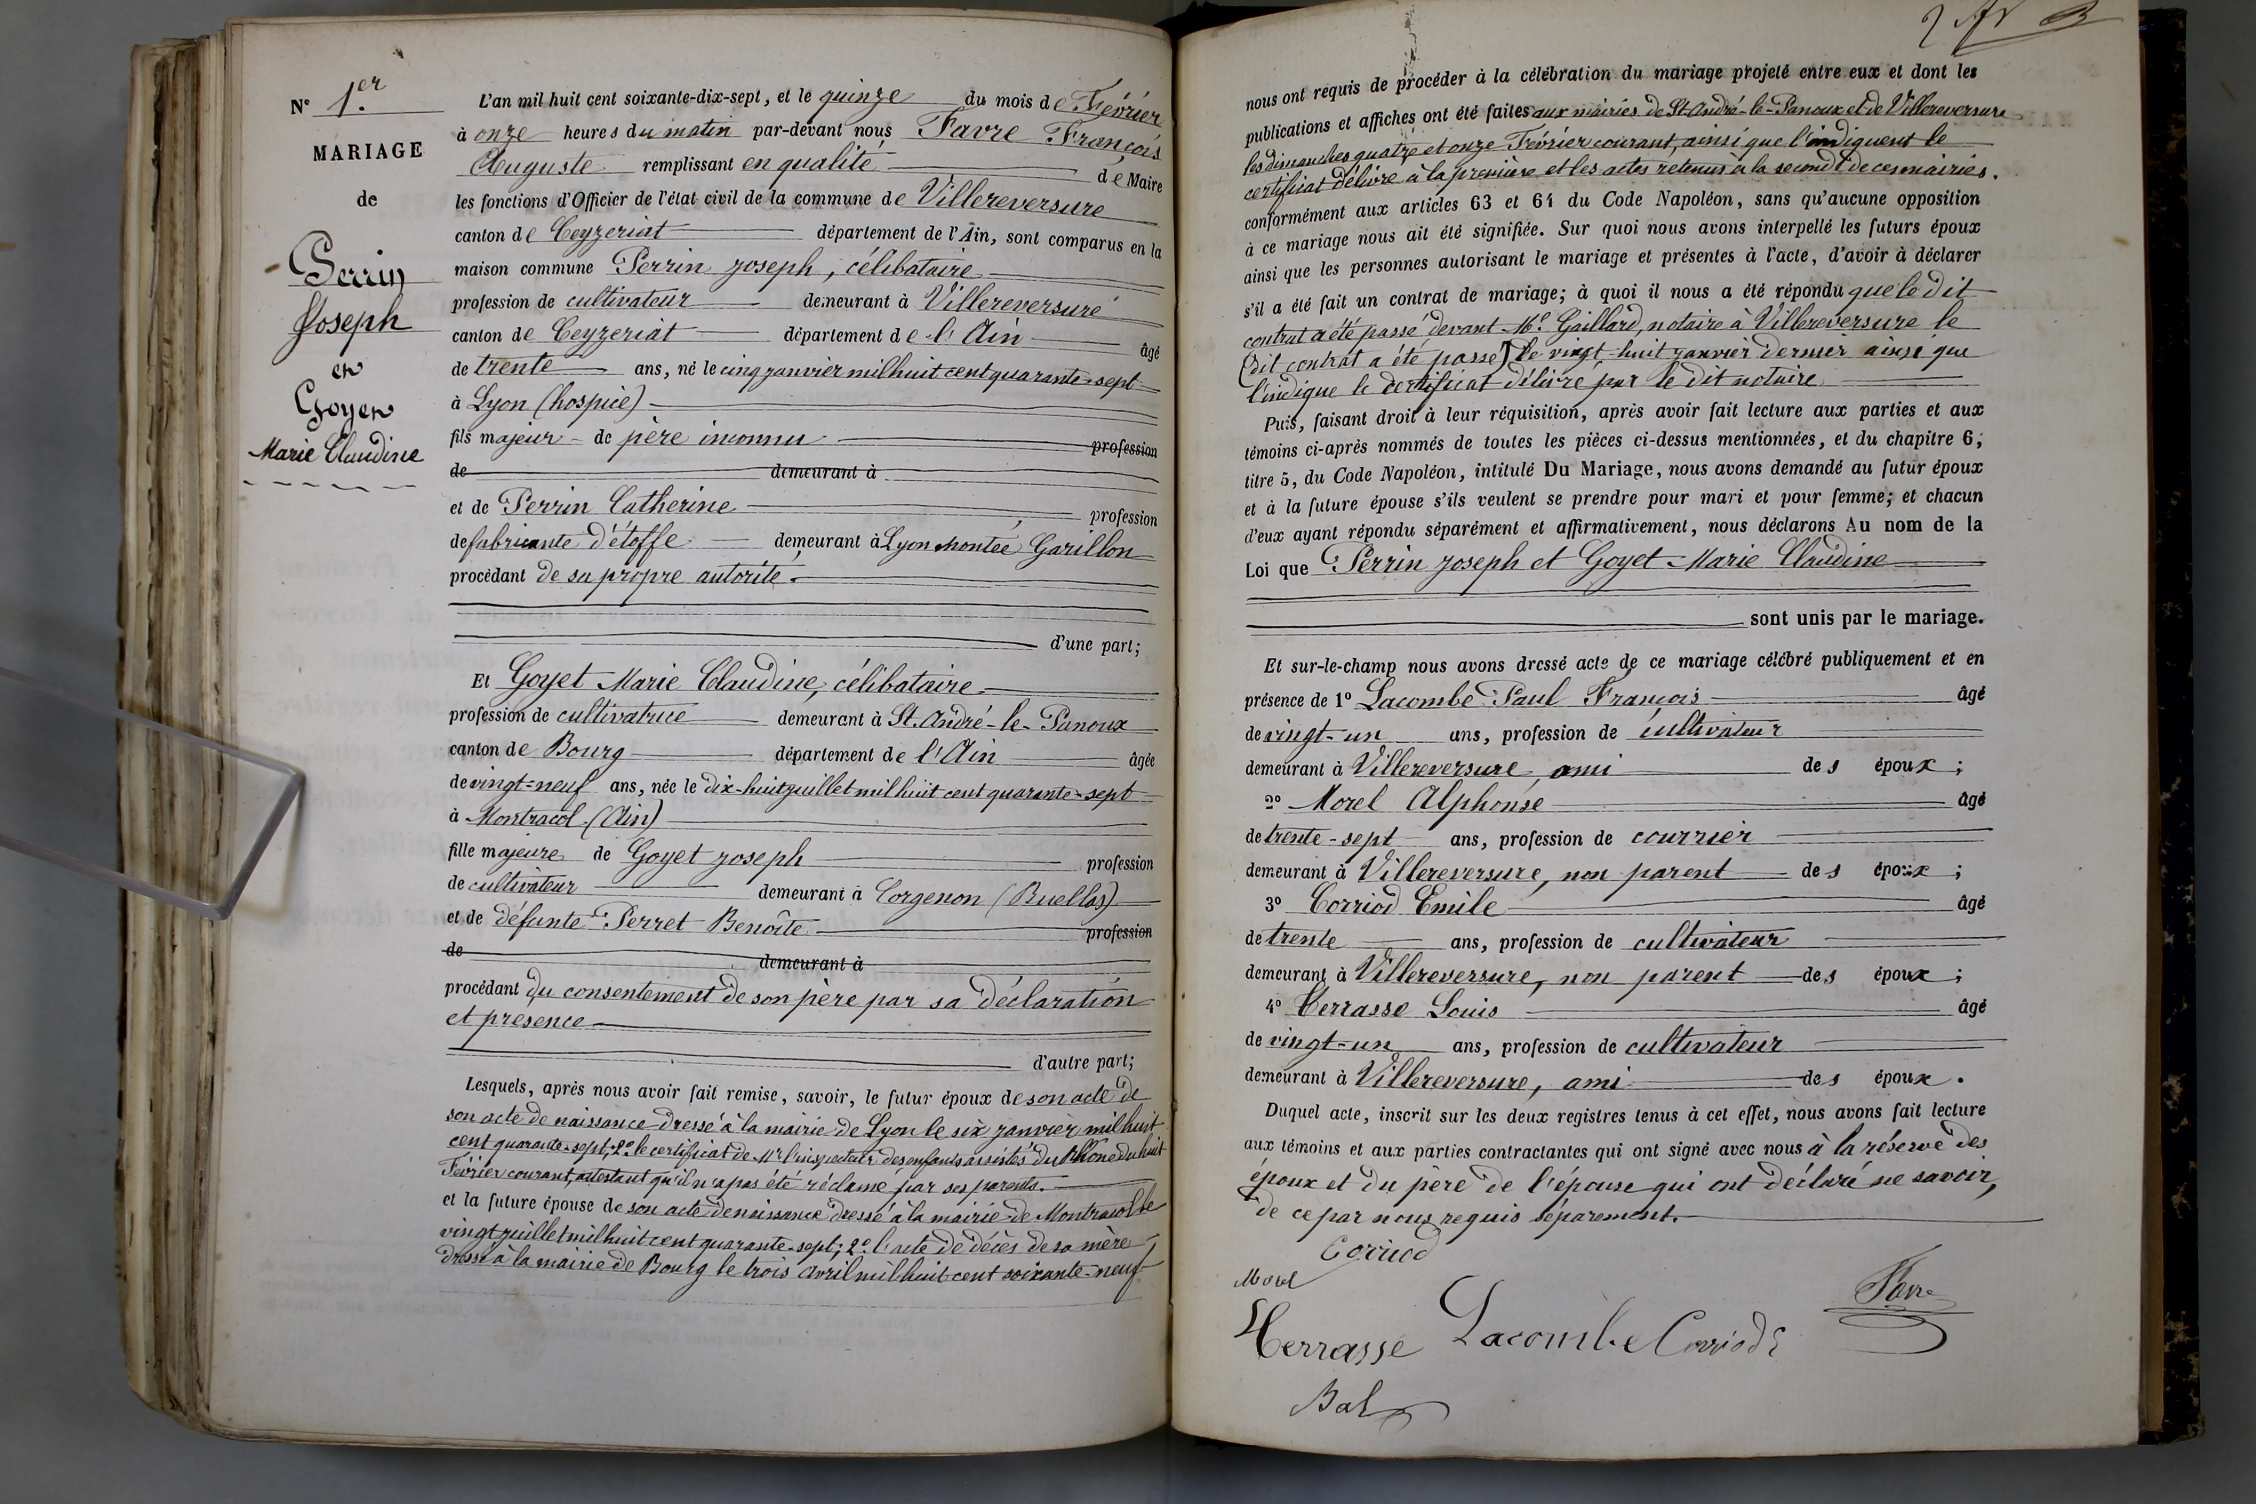 N° 1.er
MARIAGE
de
Perrin
Joseph
et
Goyet
Marie Claudine
L'an mil huit cent soixante-dix-sept, et le quinze du mois de Février
à onze heures du matin par-devant nous Favre François
Auguste remplissant en qualité de Maire
les fonctions d'Officier de l'état civil de la commune de Villereversure
canton de Ceyzeriat département de l'Ain, sont comparus en la
maison commune Perrin joseph, célibataire
profession de cultivateur demeurant à Villereversure
canton de Ceyzeriat département de l'Ain âgé
de trente ans, né le cinq janvier mil huit cent quarante-sept
à Lyon (hospice)
fils majeur de père inconnu profession
de demeurant à
et de Perrin Catherine profession
de fabricante d'étoffe demeurant à Lyon montée Garillon
procédant de sa propre autorité.
d'une part;
Et Goyet Marie Claudine, célibataire
profession de cultivatrice demeurant à St. André-le-Panoux
canton de Bourg département de l'Ain âgée
de vingt-neuf ans, née le dix-huit juillet mil huit cent quarante-sept
à Montracol (Ain)
fille majeure de Goyet joseph profession
de cultivateur demeurant à Corgenon (Buellas)
et de défunte Perret Benoîte profession
de demeurant à
procédant du consentement de son père par sa déclaration
et présence
d'autre part;
Lesquels, après nous avoir fait remise, savoir, le futur époux de son acte de
son acte de naissance dressé à la mairie de Lyon le six janvier mil huit
cent quarante-sept; 2° le certificat de Mr l'inspecteur des enfants assistés du Rhône du huit
Février courant, attestant qu'il n'a pas été réclamé par ses parents.
et la future épouse de son acte de naissance dressé à la mairie de Montracol le
vingt juillet mil huit cent quarante-sept; 2° l'acte de décès de sa mère
dressé à la mairie de Bourg le trois avril mil huit cent soixante-neuf
nous ont requis de procéder à la célébration du mariage projeté entre eux et dont les
publications et affiches ont été faites aux mairies de St André-le-Panoux et de Villereversure
les dimanches quatre et onze Février courant, ainsi que l'indiquent le
certificat délivré à la première et les actes retenus à la seconde de ces mairies.
conformément aux articles 63 et 64 du Code Napoléon, sans qu'aucune opposition
à ce mariage nous ait été signifiée. Sur quoi nous avons interpellé les futurs époux
ainsi que les personnes autorisant le mariage et présentes à l'acte, d'avoir à déclarer
s'il a été fait un contrat de mariage; à quoi il nous a été répondu que le dit
contrat a été passé devant Me. Gaillard, notaire à Villereversure le
(dit contrat a été passé) le vingt-huit janvier dernier ainsi que
l'indique le certificat délivré par le dit notaire
Puis, faisant droit à leur réquisition, après avoir fait lecture aux parties et aux
témoins ci-après nommés de toutes les pièces ci-dessus mentionnées, et du chapitre 6,
titre 5, du Code Napoléon, intitulé Du Mariage, nous avons demandé au futur époux
et à la future épouse s'ils veulent se prendre pour mari et pour femme; et chacun
d'eux ayant répondu séparément et affirmativement, nous déclarons Au nom de la
Loi que Perrin joseph et Goyet Marie Claudine
sont unis par le mariage.
Et sur-le-champ nous avons dressé acte de ce mariage célébré publiquement et en
présence de 1° Lacombe Paul François âgé
de vingt-un ans, profession de cultivateur
demeurant à Villereversure, ami des époux;
2° Morel Alphonse âgé
de trente-sept ans, profession de courrier
demeurant à Villereversure, non parent des époux;
3° Corriod Emile âgé
de trente ans, profession de cultivateur
demeurant à Villereversure, non parent des époux;
4° Terrasse Louis âgé
de vingt-un ans, profession de cultivateur
demeurant à Villereversure, ami des époux.
Duquel acte, inscrit sur les deux registres tenus à cet effet, nous avons fait lecture
aux témoins et aux parties contractantes qui ont signé avec nous à la réserve des
époux et du père de l'épouse qui ont déclaré ne savoir,
de ce par nous requis séparément.
Corriod
Morel
Favre
Terrasse Lacombe Corriod
Bal